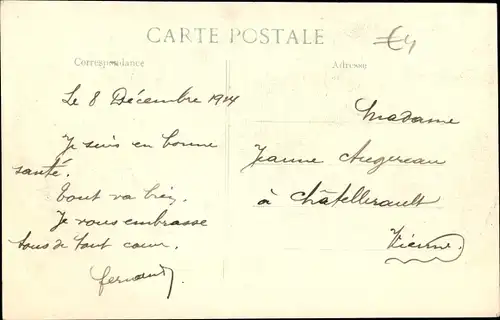 CARTE POSTALE
€4
Correspondance
Adresse
Le 8 Décembre 1914
Je suis en bonne
santé.
Tout va bien,
Je vous embrasse
tous de tout cœur.
Fernand
Madame
Jeanne Augereau
à Châtellerault
Vienne.